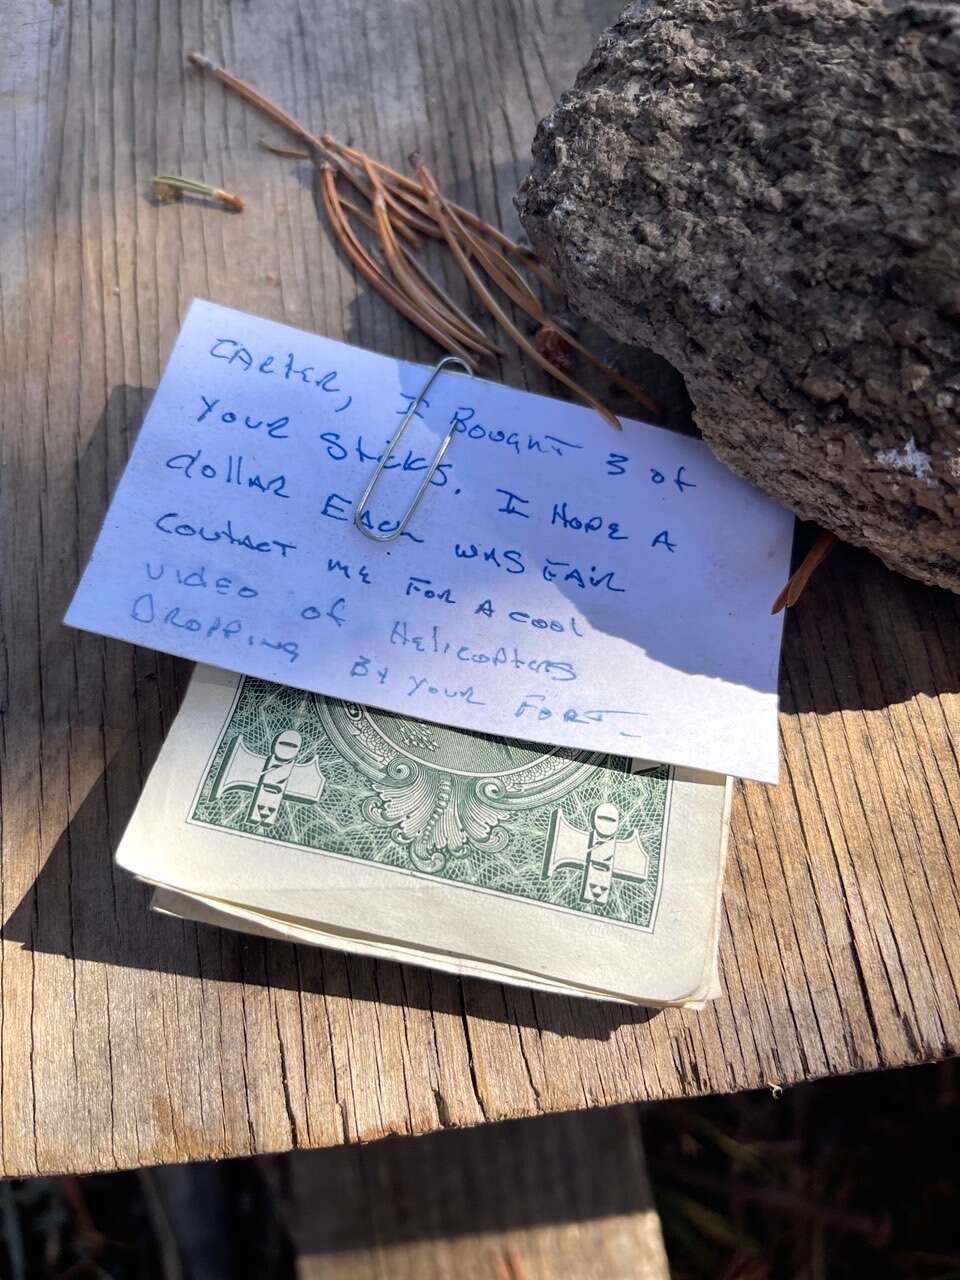 CARTER, I BOUGHT 3 of
YOUR Sticks. I HOPE A
dollAR EACH WAS FAIR
CONTACT ME FOR A COOL
VIDEO of HELICOPTERS
DROPPING BY YOUR FORT
1 ONE 1 ONE